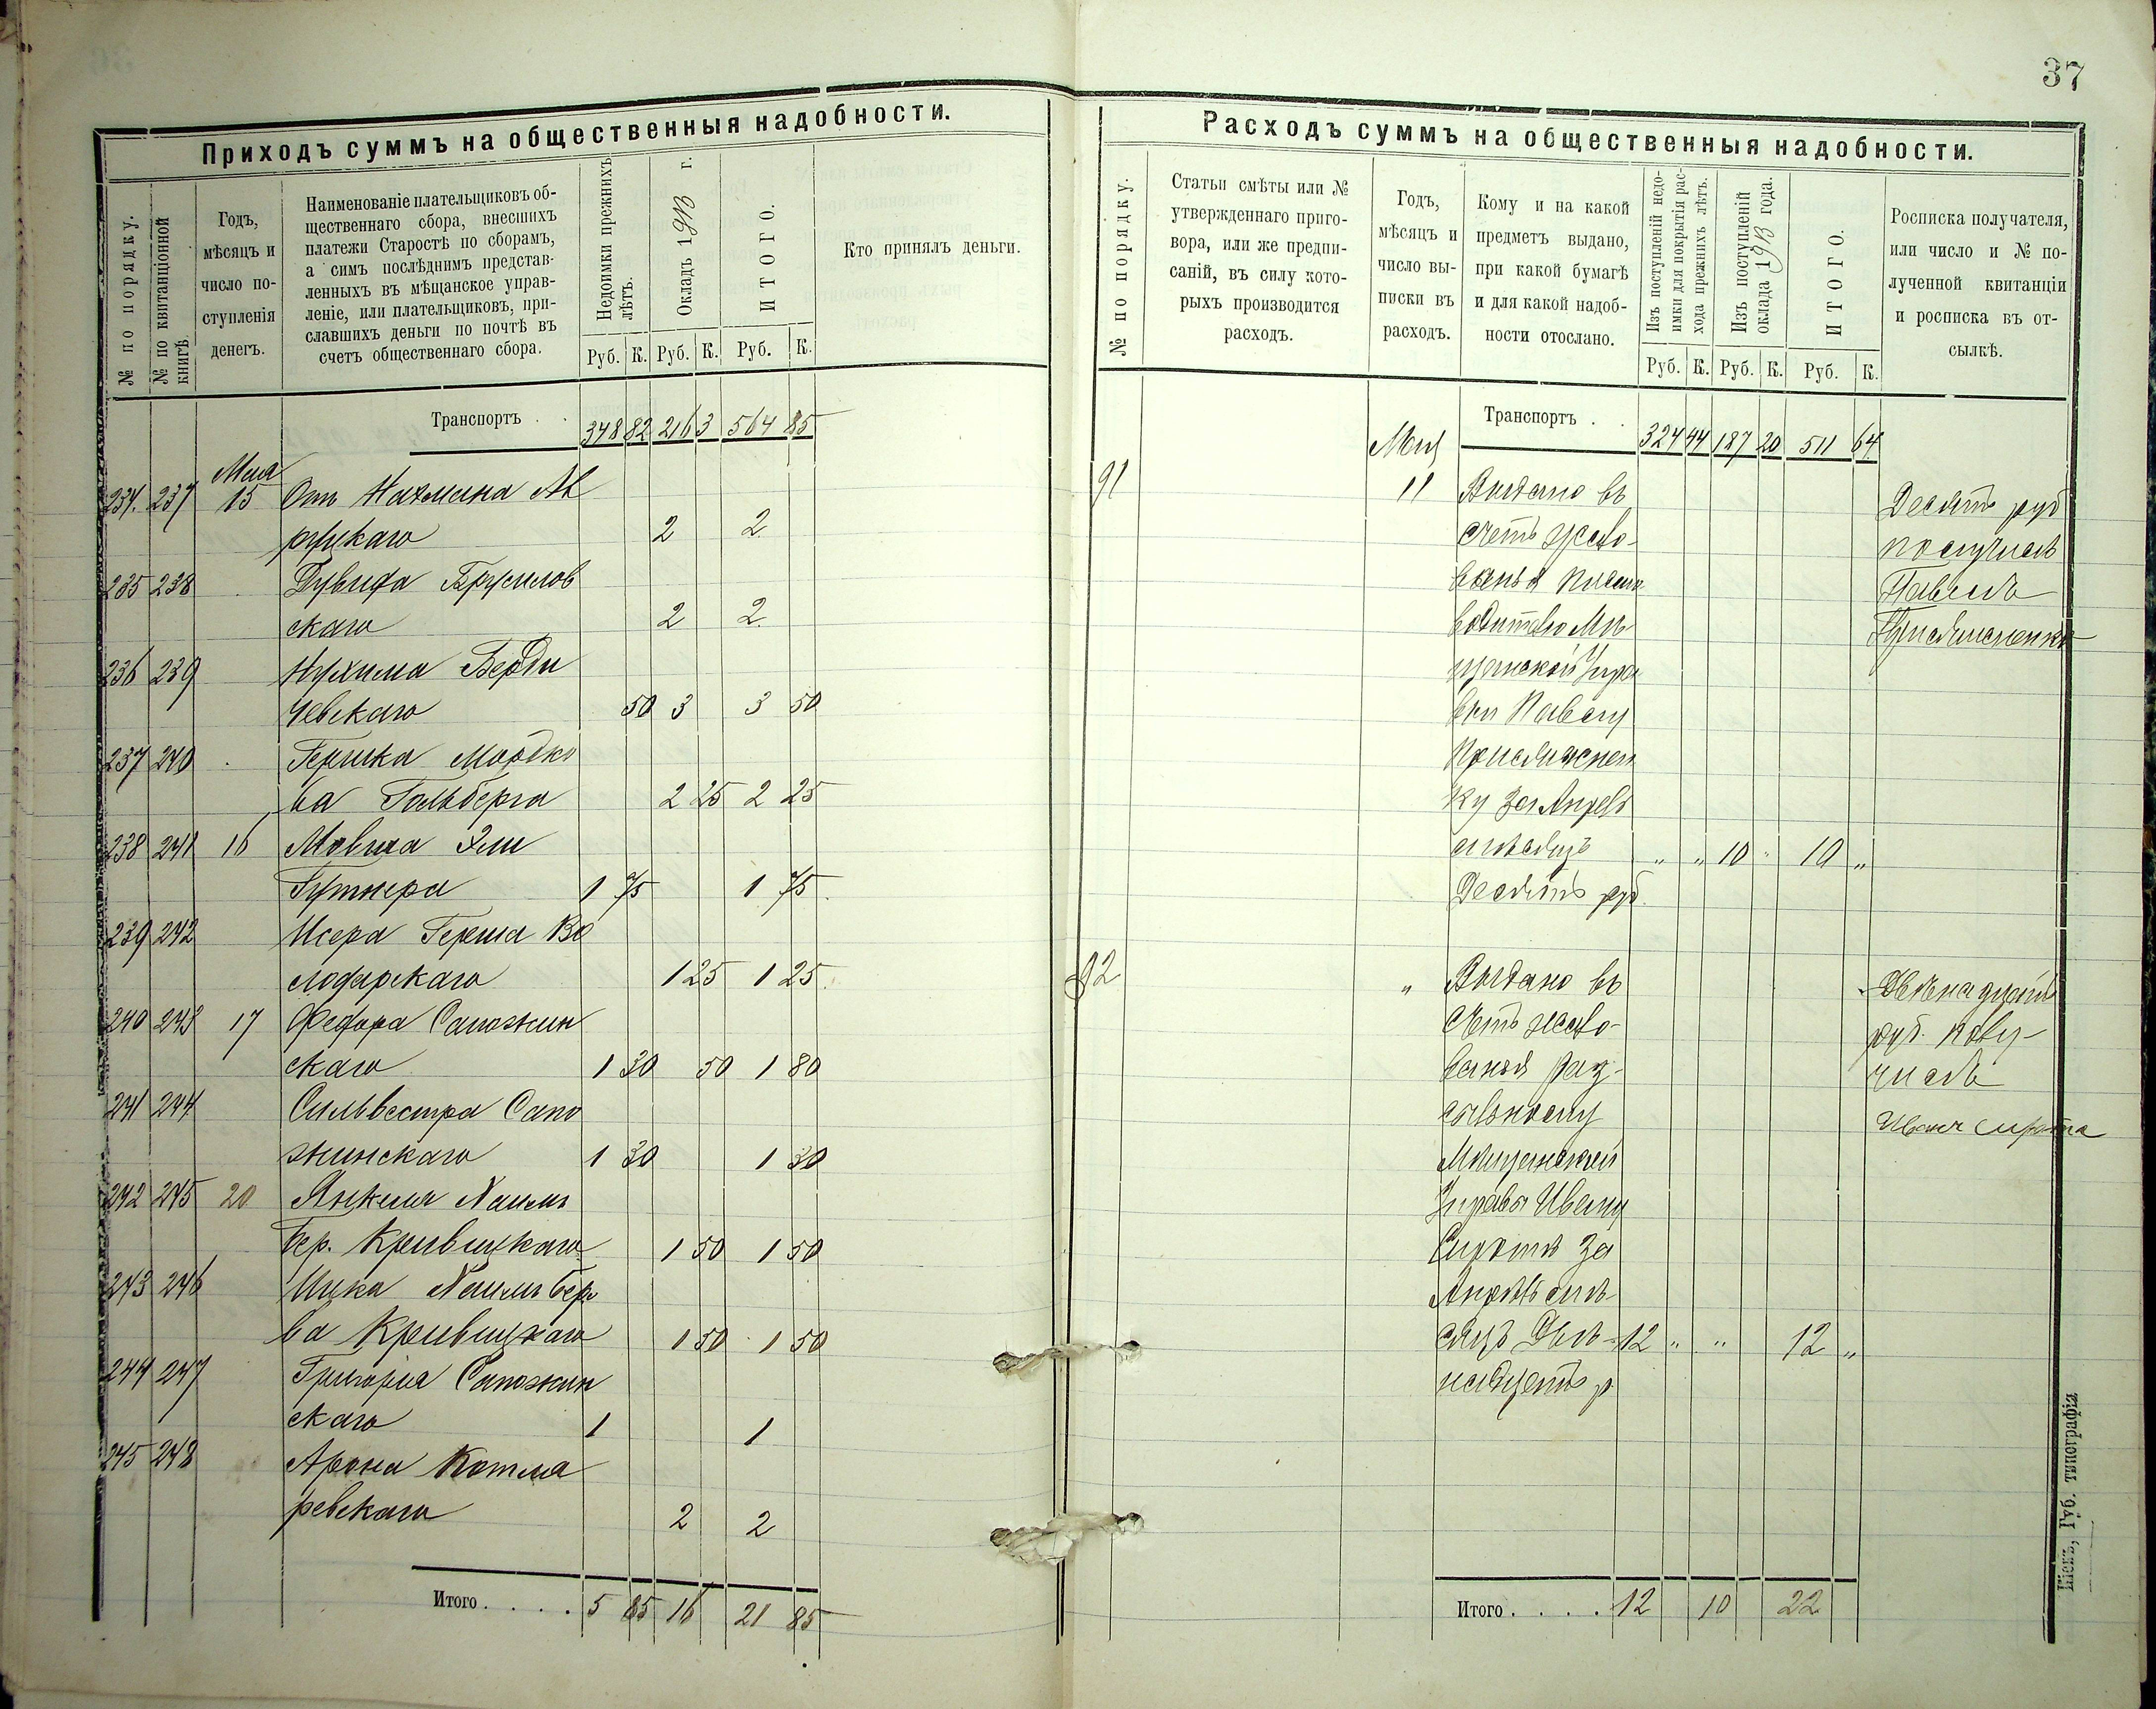 37
Приходъ суммъ на общественныя надобности.
№ по порядку.
№ по квитанціонной книгѣ.
Годъ,
мѣсяцъ и
число по-
ступленія
денегъ.
Наименованіе плательщиковъ об-
щественнаго сбора, внесшихъ
платежи Старостѣ по сборамъ,
а симъ послѣднимъ представ-
ленныхъ въ мѣщанское управ-
леніе, или плательщиковъ, при-
славшихъ деньги по почтѣ въ
счетъ общественнаго сбора.
Недоимки прежнихъ лѣтъ.
Окладъ 1913 г.
ИТОГО.
Кто принялъ деньги.
Руб. К. Руб. К. Руб. К.
Транспортъ . . 348 82 216 3 564 85
Мая
234. 237 15 Отъ Нахмана
2 2.
235 238 Дувида Брусилов
скаго 2 2.
236 239 Нухима Берди
чевскаго 50 3 3 50
237 240 Гершка Мордко
ва Гольберга 2 25 2 25
238 241 16 Мовша Эли
Гутнера 1 75 1 75.
239 242 Исера Герша Во
лодарскаго 1 25 1 25.
240 243 17 Федора Сапожин
скаго 1 30 50 1 80
241 244 Сильвестра Сапо
жинскаго 1 30 1 30
242 245 20 Янкеля Хаимъ
Бер. Кривицкаго 1 50 1 50
243 246 Ицка Хаимъ Бер
ва Кривицкаго 1 50 1 50
244 247 Григорія Сапожин
скаго 1 1
245 248 Арона Котля
ревскаго 2 2
Итого . . . . 5 85 16 21 85
Расходъ суммъ на общественныя надобности.
№ по порядку.
Статьи смѣты или №
утвержденнаго приго-
вора, или же предпи-
саній, въ силу кото-
рыхъ производится
расходъ.
Годъ,
мѣсяцъ и
число вы-
писки въ
расходъ.
Кому и на какой
предметъ выдано,
при какой бумагѣ
и для какой надоб-
ности отослано.
Изъ поступленій недо-
имки для покрытія рас-
хода прежнихъ лѣтъ.
Изъ поступленій
оклада 1913 года.
ИТОГО.
Росписка получателя,
или число и № по-
лученной квитанціи
и росписка въ от-
сылкѣ.
Руб. К. Руб. К. Руб. К.
Транспортъ . . 324 44 187 20 511 64
Мая
91 11 Выдано въ
счетъ жало-
ванья писмо
водителю Мѣ
щанской Упра
вы Павлу
Присяжнен
ку за Апрель
мѣсяцъ „ „ 10 „ 10 „
Десять руб.
Десять руб
получилъ
Павелъ
Присяжненко
92 „ Выдано въ
счетъ жало-
ванья раз-
сыльному
Мѣщанской
Управы Ивану
Сиротѣ за
Апрѣль мѣ-
сяцъ Двѣ- 12 „ „ 12 „
надцать р
Двенадцать
руб. полу-
чилъ
Иванъ Сирота
Итого . . . . 12 10 22
Кіевъ, Губ. типографія